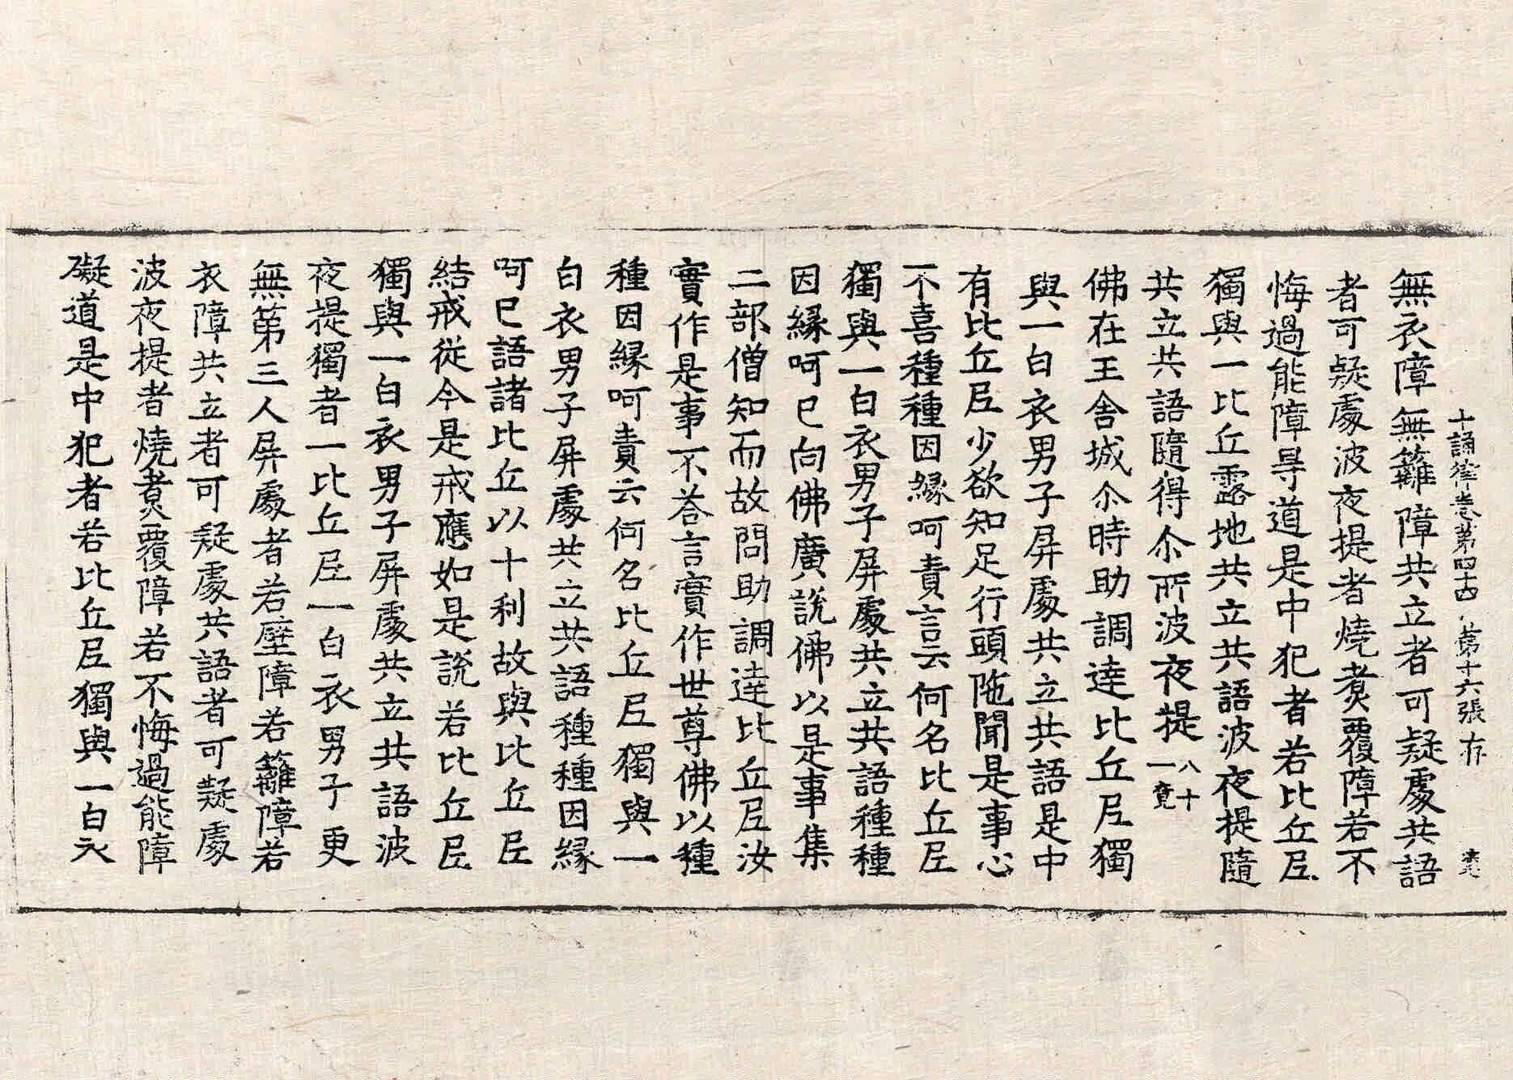 十誦律卷第四十四 第十六張 存
無衣障無籬障共立者可疑處共語
者可疑處波夜提者燒煑覆障若不
悔過能障㝵道是中犯者若比丘尼
獨與一比丘露地共立共語波夜提隨
共立共語隨得尒所波夜提 八十一竟
佛在王舍城尒時助調達比丘尼獨
與一白衣男子屏處共立共語是中
有比丘尼少欲知足行頭陁聞是事心
不喜種種因緣呵責言云何名比丘尼
獨與一白衣男子屏處共立共語種種
因緣呵已向佛廣說佛以是事集
二部僧知而故問助調達比丘尼汝
實作是事不荅言實作世尊佛以種
種因緣呵責云何名比丘尼獨與一
白衣男子屏處共立共語種種因緣
呵已語諸比丘以十利故與比丘尼
結戒從今是戒應如是說若比丘尼
獨與一白衣男子屏處共立共語波
夜提獨者一比丘尼一白衣男子更
無第三人屏處者若壁障若籬障若
衣障共立者可疑處共語者可疑處
波夜提者燒煑覆障若不悔過能障
礙道是中犯者若比丘尼獨與一白衣